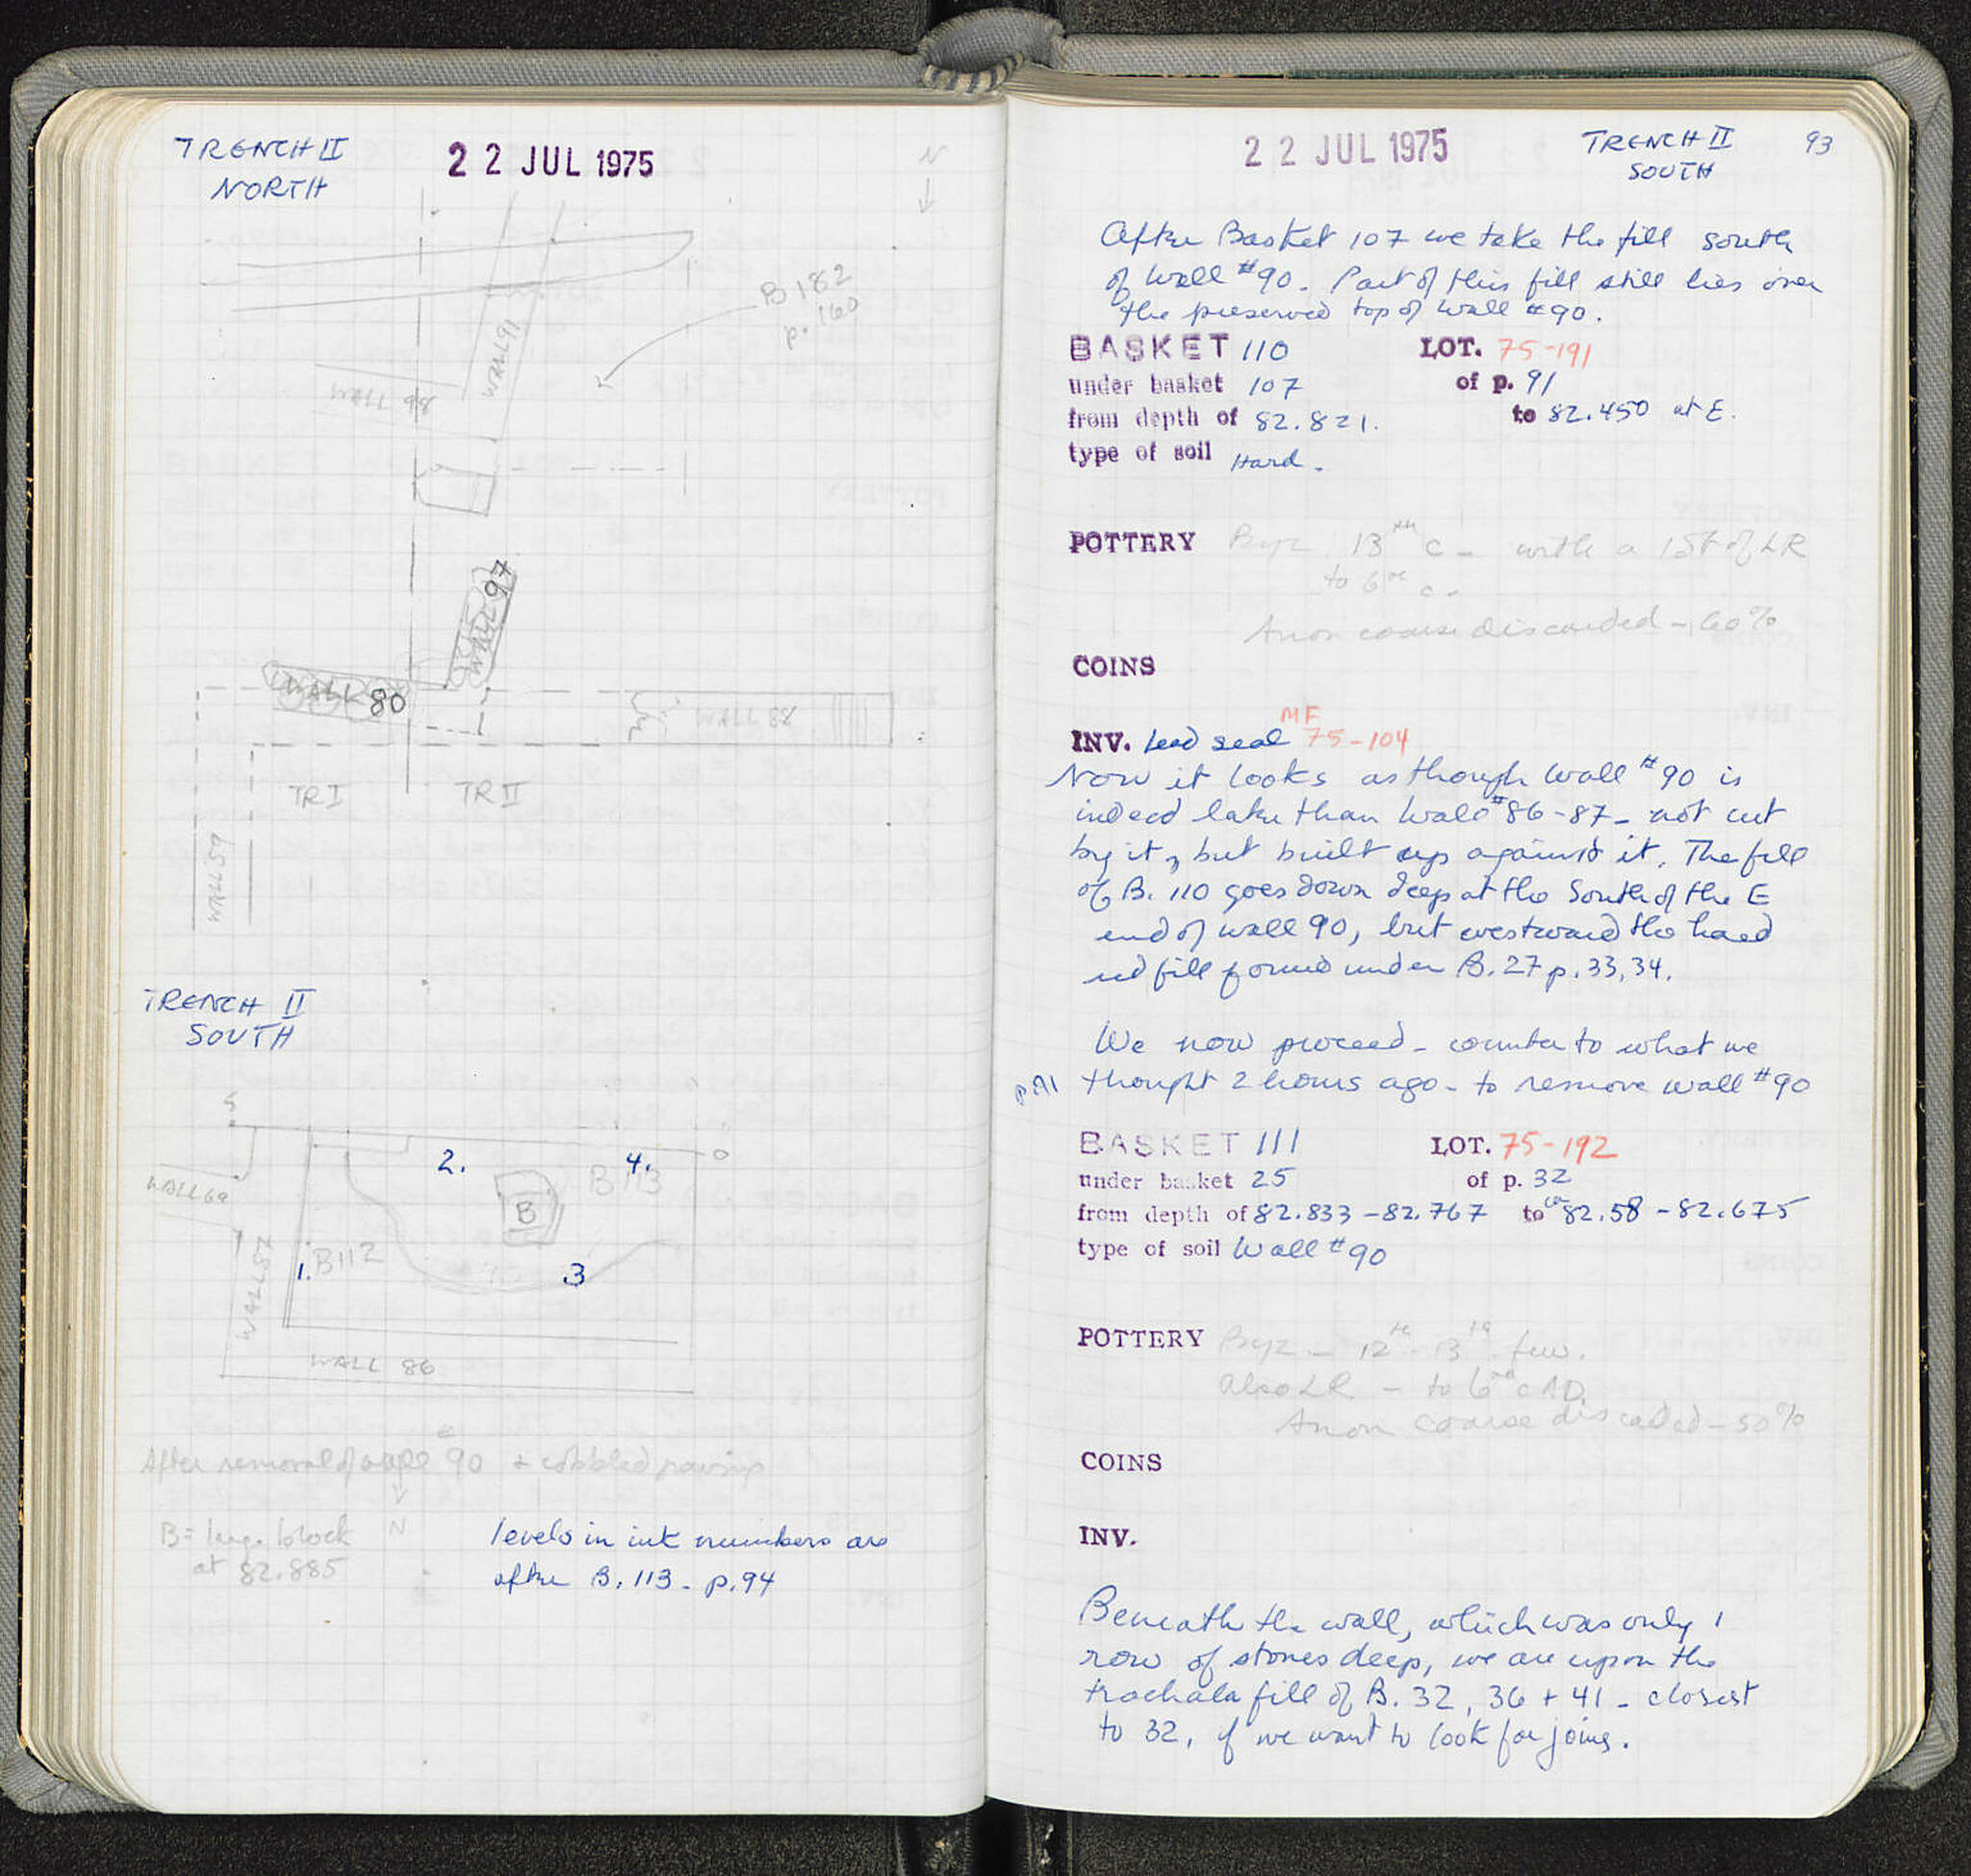 TRENCH II
NORTH
22 JUL 1975
N
B 182
p. 160
WALL 91
WALL 98
WALL 97
WALL 80
WALL 88
TR I
TR II
WALL 59
TRENCH II
SOUTH
2.
4.
B 113
B
WALL 69
1. B 112
3
WALL 87
WALL 86
After removal of wall #90 + cobbled paving
N
B = large block
at 82.885
levels in ink numbers are
after B. 113 - p. 94
22 JUL 1975
TRENCH II
SOUTH
93
After Basket 107 we take the fill south
of Wall #90. Part of this fill still lies over
the preserved top of Wall #90.
BASKET 110 LOT. 75-191
under basket 107 of p. 91
from depth of 82.821. to 82.450 at E.
type of soil Hard.
POTTERY Byz 13th c - with a lot of LR
to 6th c -
Anon coarse discarded - 60%
COINS
MF
INV. Lead seal 75-104
Now it looks as though Wall #90 is
indeed later than Wall #86-87 - not cut
by it, but built up against it. The fill
of B. 110 goes down deep at the South of the E
end of wall 90, but westward the hard
red fill found under B. 27 p. 33, 34.
We now proceed - counter to what we
p. 91 thought 2 hours ago - to remove wall #90
BASKET 111 LOT. 75-192
under basket 25 of p. 32
from depth of 82.833 - 82.767 to 82.58 - 82.675
type of soil Wall #90
POTTERY Byz - 12th - 13th few.
Also LR - to 6th c AD.
Anon coarse discarded - 50%
COINS
INV.
Beneath the wall, which was only 1
row of stones deep, we are upon the
trochala fill of B. 32, 36 + 41 - closest
to 32, if we want to look for joins.